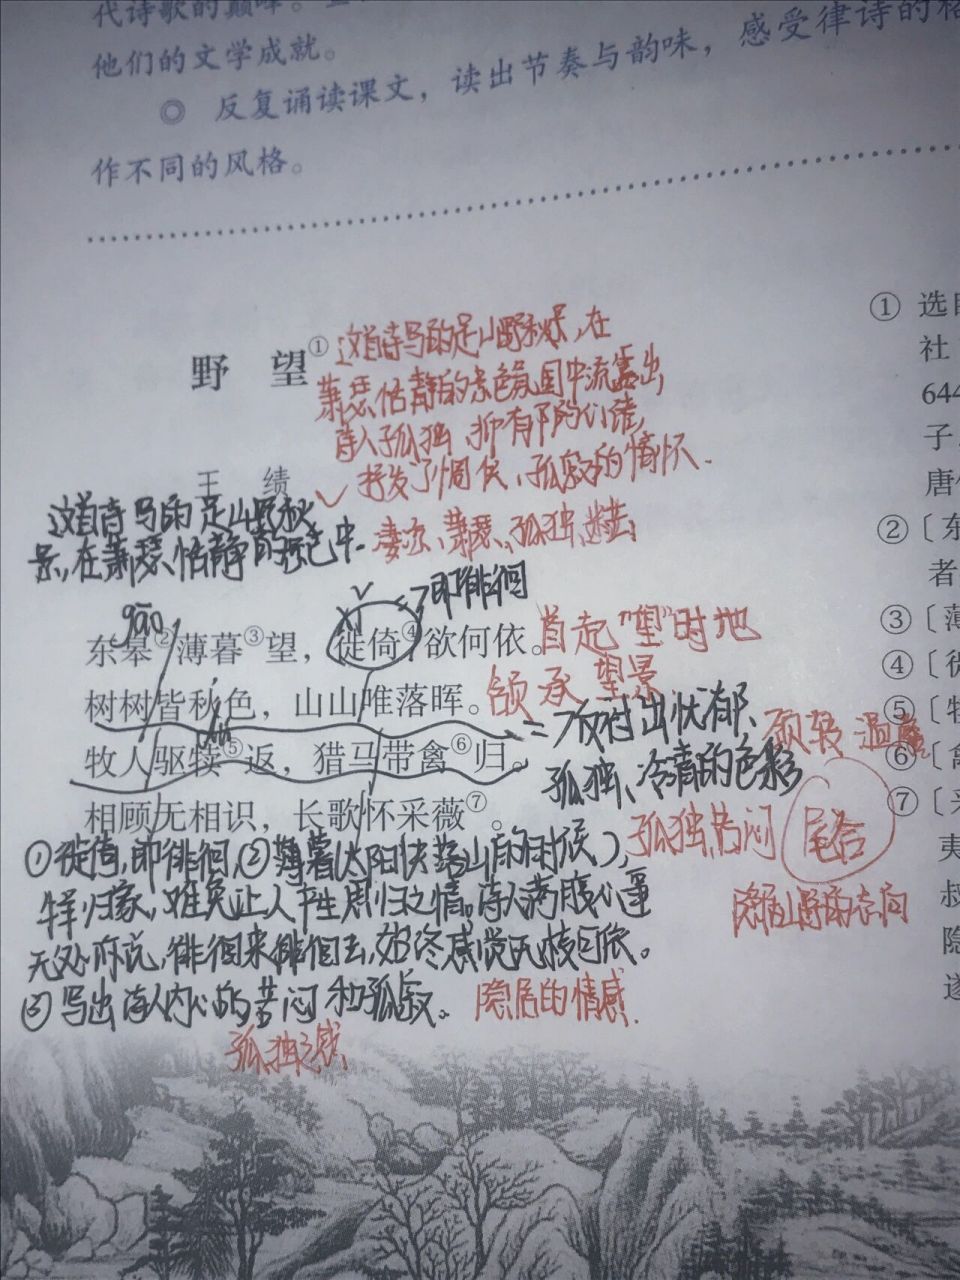 代诗歌的巅峰。
他们的文学成就。
◎ 反复诵读课文，读出节奏与韵味，感受律诗的格
作不同的风格。
野 望①
这首诗写的是山野秋景,在
萧瑟恬静的景色氛围中流露出
诗人孤独、抑有郁的心情,
抒发了惆怅、孤寂的情怀.
王 绩
这首诗写的是山野秋
景,在萧瑟、恬静的景色中.
凄凉、萧瑟、孤独、
gāo
xǐ
即徘徊
东皋②薄暮③望，徙倚④欲何依。
首起"望"时地
树树皆秋色，山山唯落晖。
颔承 望景
dú
牧人驱犊⑤返，猎马带禽⑥归。
反衬出忧郁、
孤独、冷清的色彩
颈转 温馨
相顾无相识，长歌怀采薇⑦。
孤独苦闷
尾合
隐居山野的志向
①徙倚,即徘徊,②薄暮(太阳快落山的时候),
归家,难免让人产生思归之情。诗人满腹心事
无处诉说,徘徊来徘徊去,始终感觉无枝可依。
③写出诗人内心的苦闷和孤寂。
隐居的情感.
孤独之感
① 选自
社
644
子
唐
②〔东
者
③〔薄
④〔徙
⑤〔牧
⑥〔禽
⑦〔采
夷
叔
隐
遂